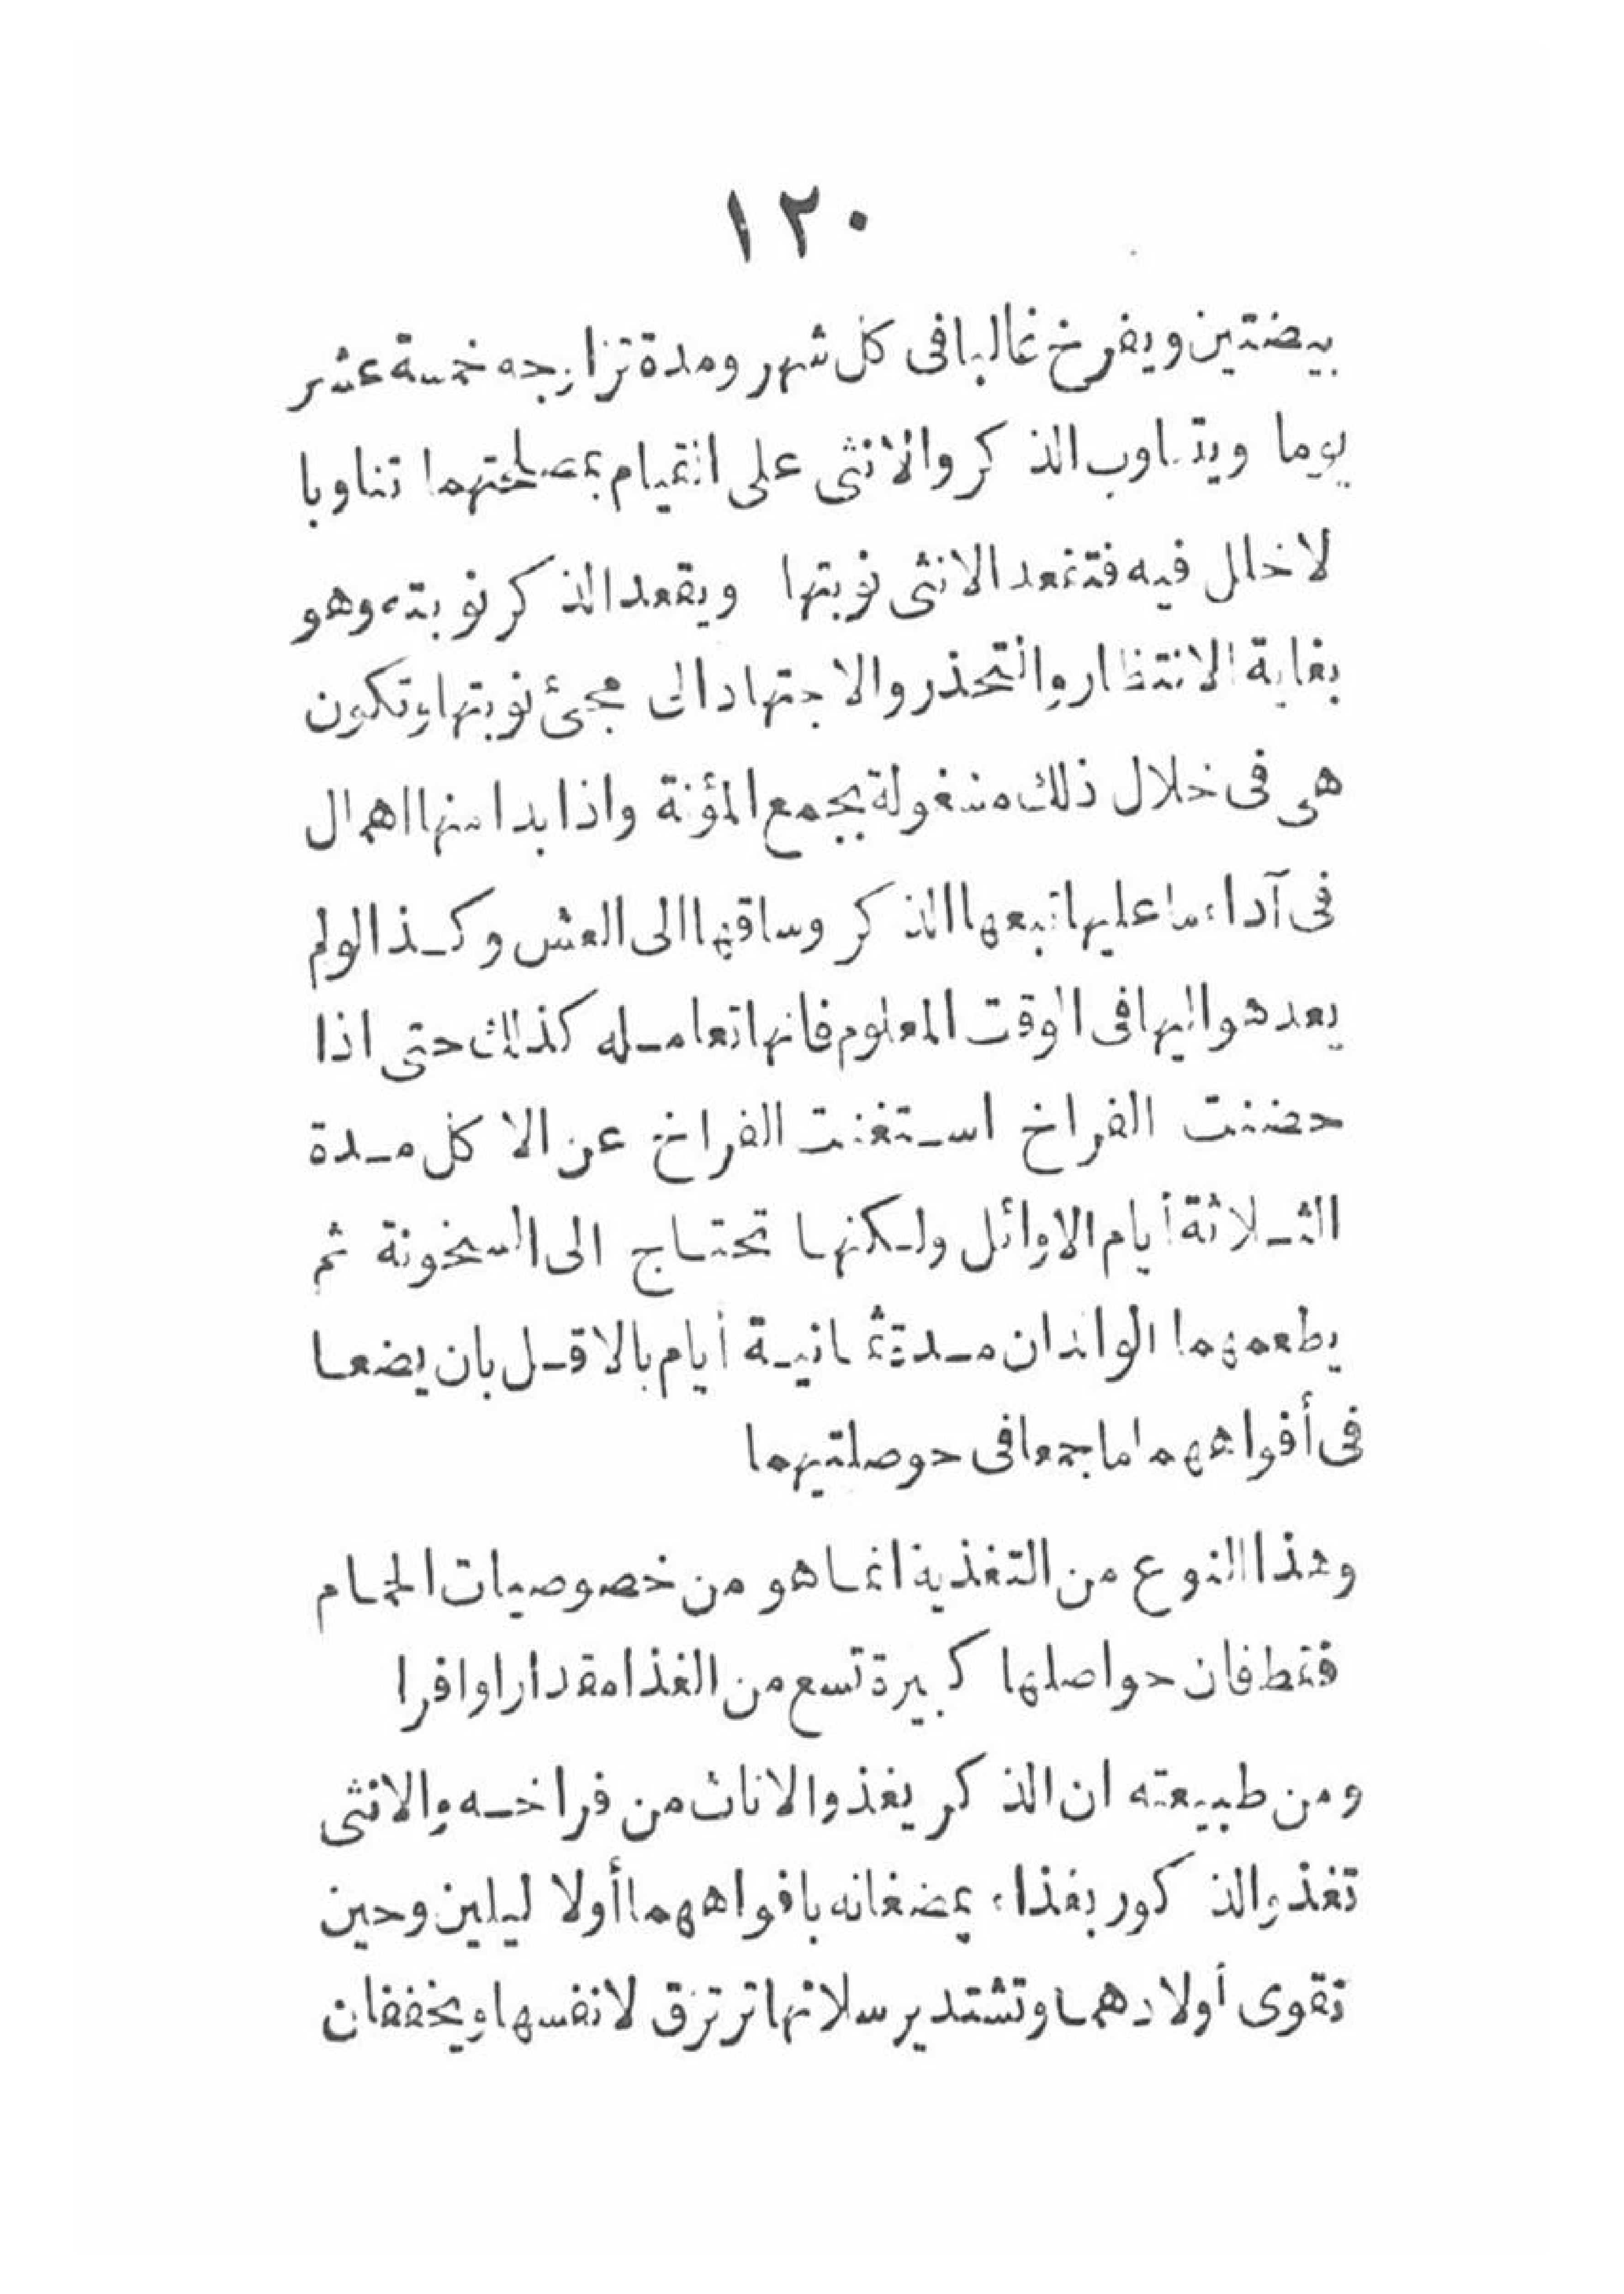 ١٢٠
بيضتين ويفرخ غالبا فى كل شهر ومدة تزاوجه خمسة عشر
يوما ويتناوب الذكر والانثى على القيام بمصلحتهما تناوبا
لا خلل فيه فتقعد الانثى نوبتها ويقعد الذكر نوبته وهو
بغاية الانتظار والتحذر والاجتهاد الى مجئ نوبتها وتكون
هى فى خلال ذلك مشغولة بجمع المؤنة واذا بدا منها اهمال
فى آداء ما عليها تبعها الذكر وساقها الى العش وكذا لو لم
يعد هو اليها فى الوقت المعلوم فانها تعامله كذلك حتى اذا
حضنت الفراخ استغنت الفراخ عن الاكل مدة
الثلاثة أيام الاوائل ولكنها تحتاج الى السخونة ثم
يطعمهما الوالدان مدة ثمانية أيام بالاقل بان يضعا
فى أفواههما ما جمعا فى حوصلتيهما
وهذا النوع من التغذية انما هو من خصوصيات الحمام
فقط فان حواصلها كبيرة تسع من الغذا مقدارا وافرا
ومن طبيعته ان الذكر يغذو الاناث من فراخه والانثى
تغذو الذكور بغذاء يمضغانه بافواههما أولا ليلين وحين
تقوى أولادهما وتشتد يرسلانها ترتزق لانفسها ويخففان